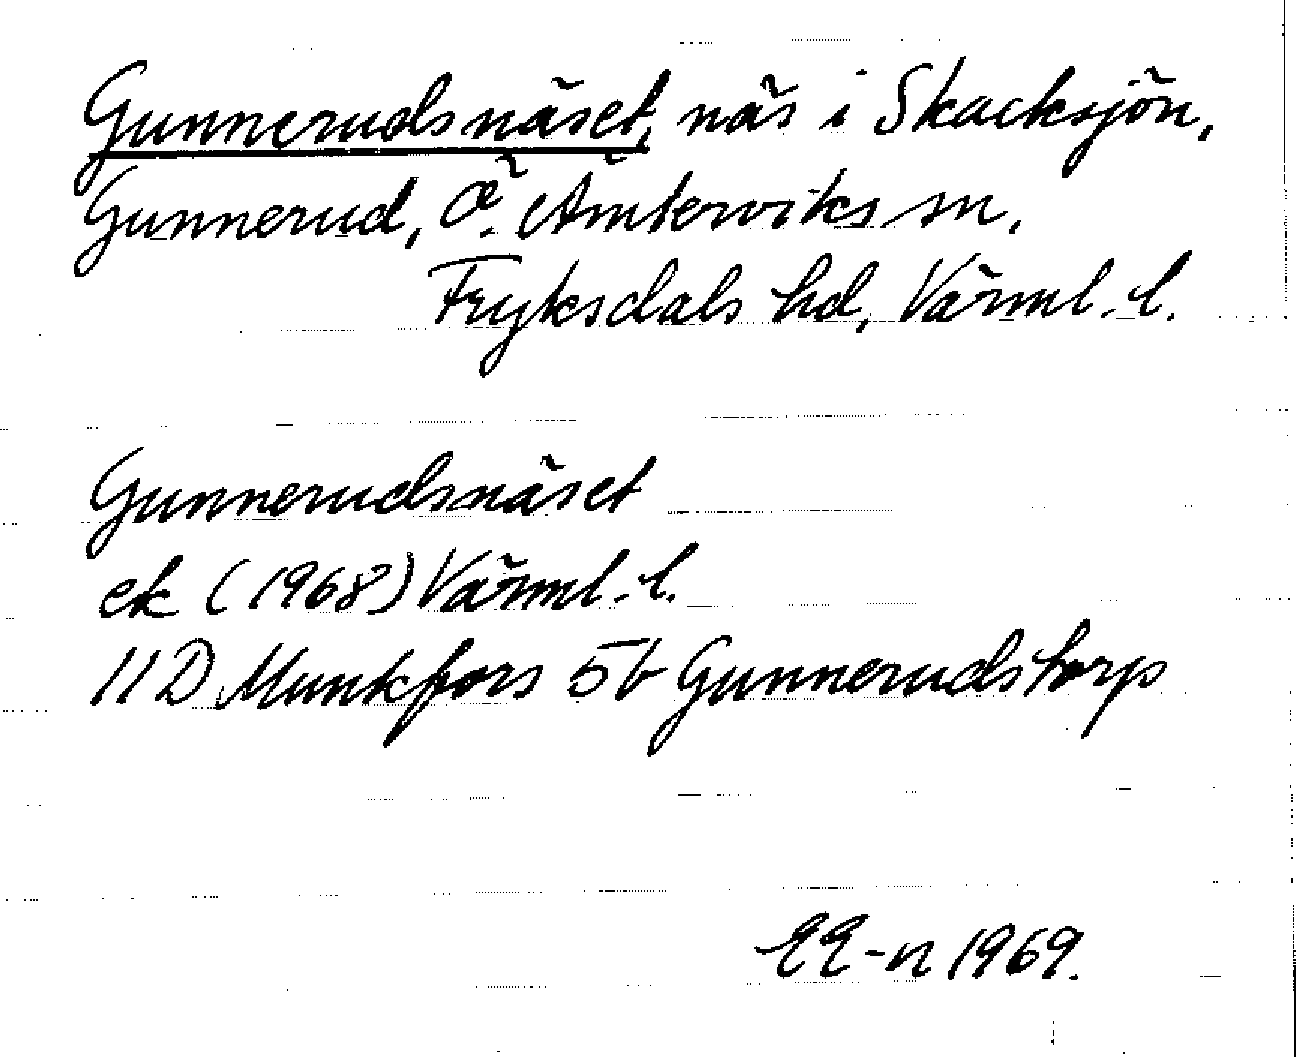 Gunnerudsnäset, näs i Skacksjön,
Gunnerud, Ö. Ämterviks sn,
Fryksdals hd, Värml. l.
Gunnerudsnäset
ek (1968) Värml. l.
11D Munkfors 5b Gunnerudstorp
EE-n 1969.